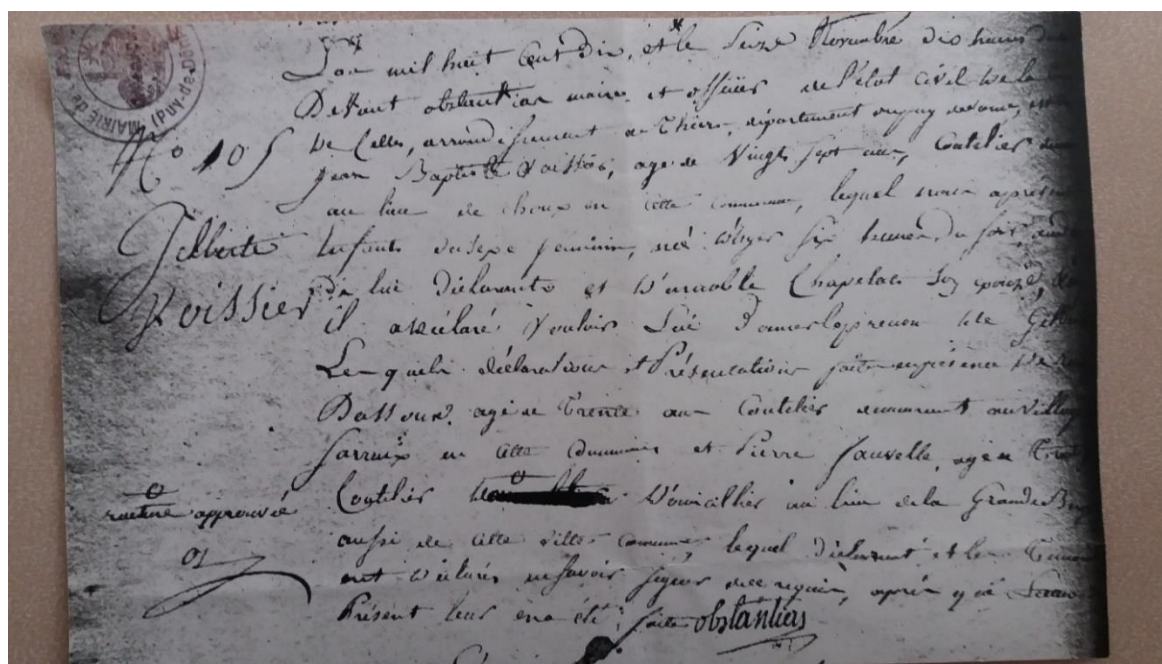 MAIRIE de (Puy-de-Dôme)
L'an mil huit Cent Dix, et le Seize Novembre dix heures du
Devant maire et officier de l'état civil de la
No 105
de Celles, arrondissement de Thiers, département du puy de dome, est
Jean Baptiste Voissier, agé de Vingt Sept ans, Coutelier
au lieu de choux en cette commune, lequel nous a présenté
Gilberte
Enfant du sexe feminin, né d'hyer six heures du soir,
Voissier
De lui Déclarant et d'amable Chapelas Son épouse,
il a déclaré Vouloir Lui Donner le prenom de Gilb
Les quels déclaration et Présentation faite en présence de
Dassoux agé de Trente ans Coutelier demeurant au village
Sarraix en cette Commune et Pierre Sauvelle, agé de
Coutelier Domicillier au lieu de la Grande
rature approuvé
aussi de cette commune, lequel Déclarant et les Temoins
ont déclarés ne Savoir Signer de ce requis, après que
Présent leur en a été faite obstantias